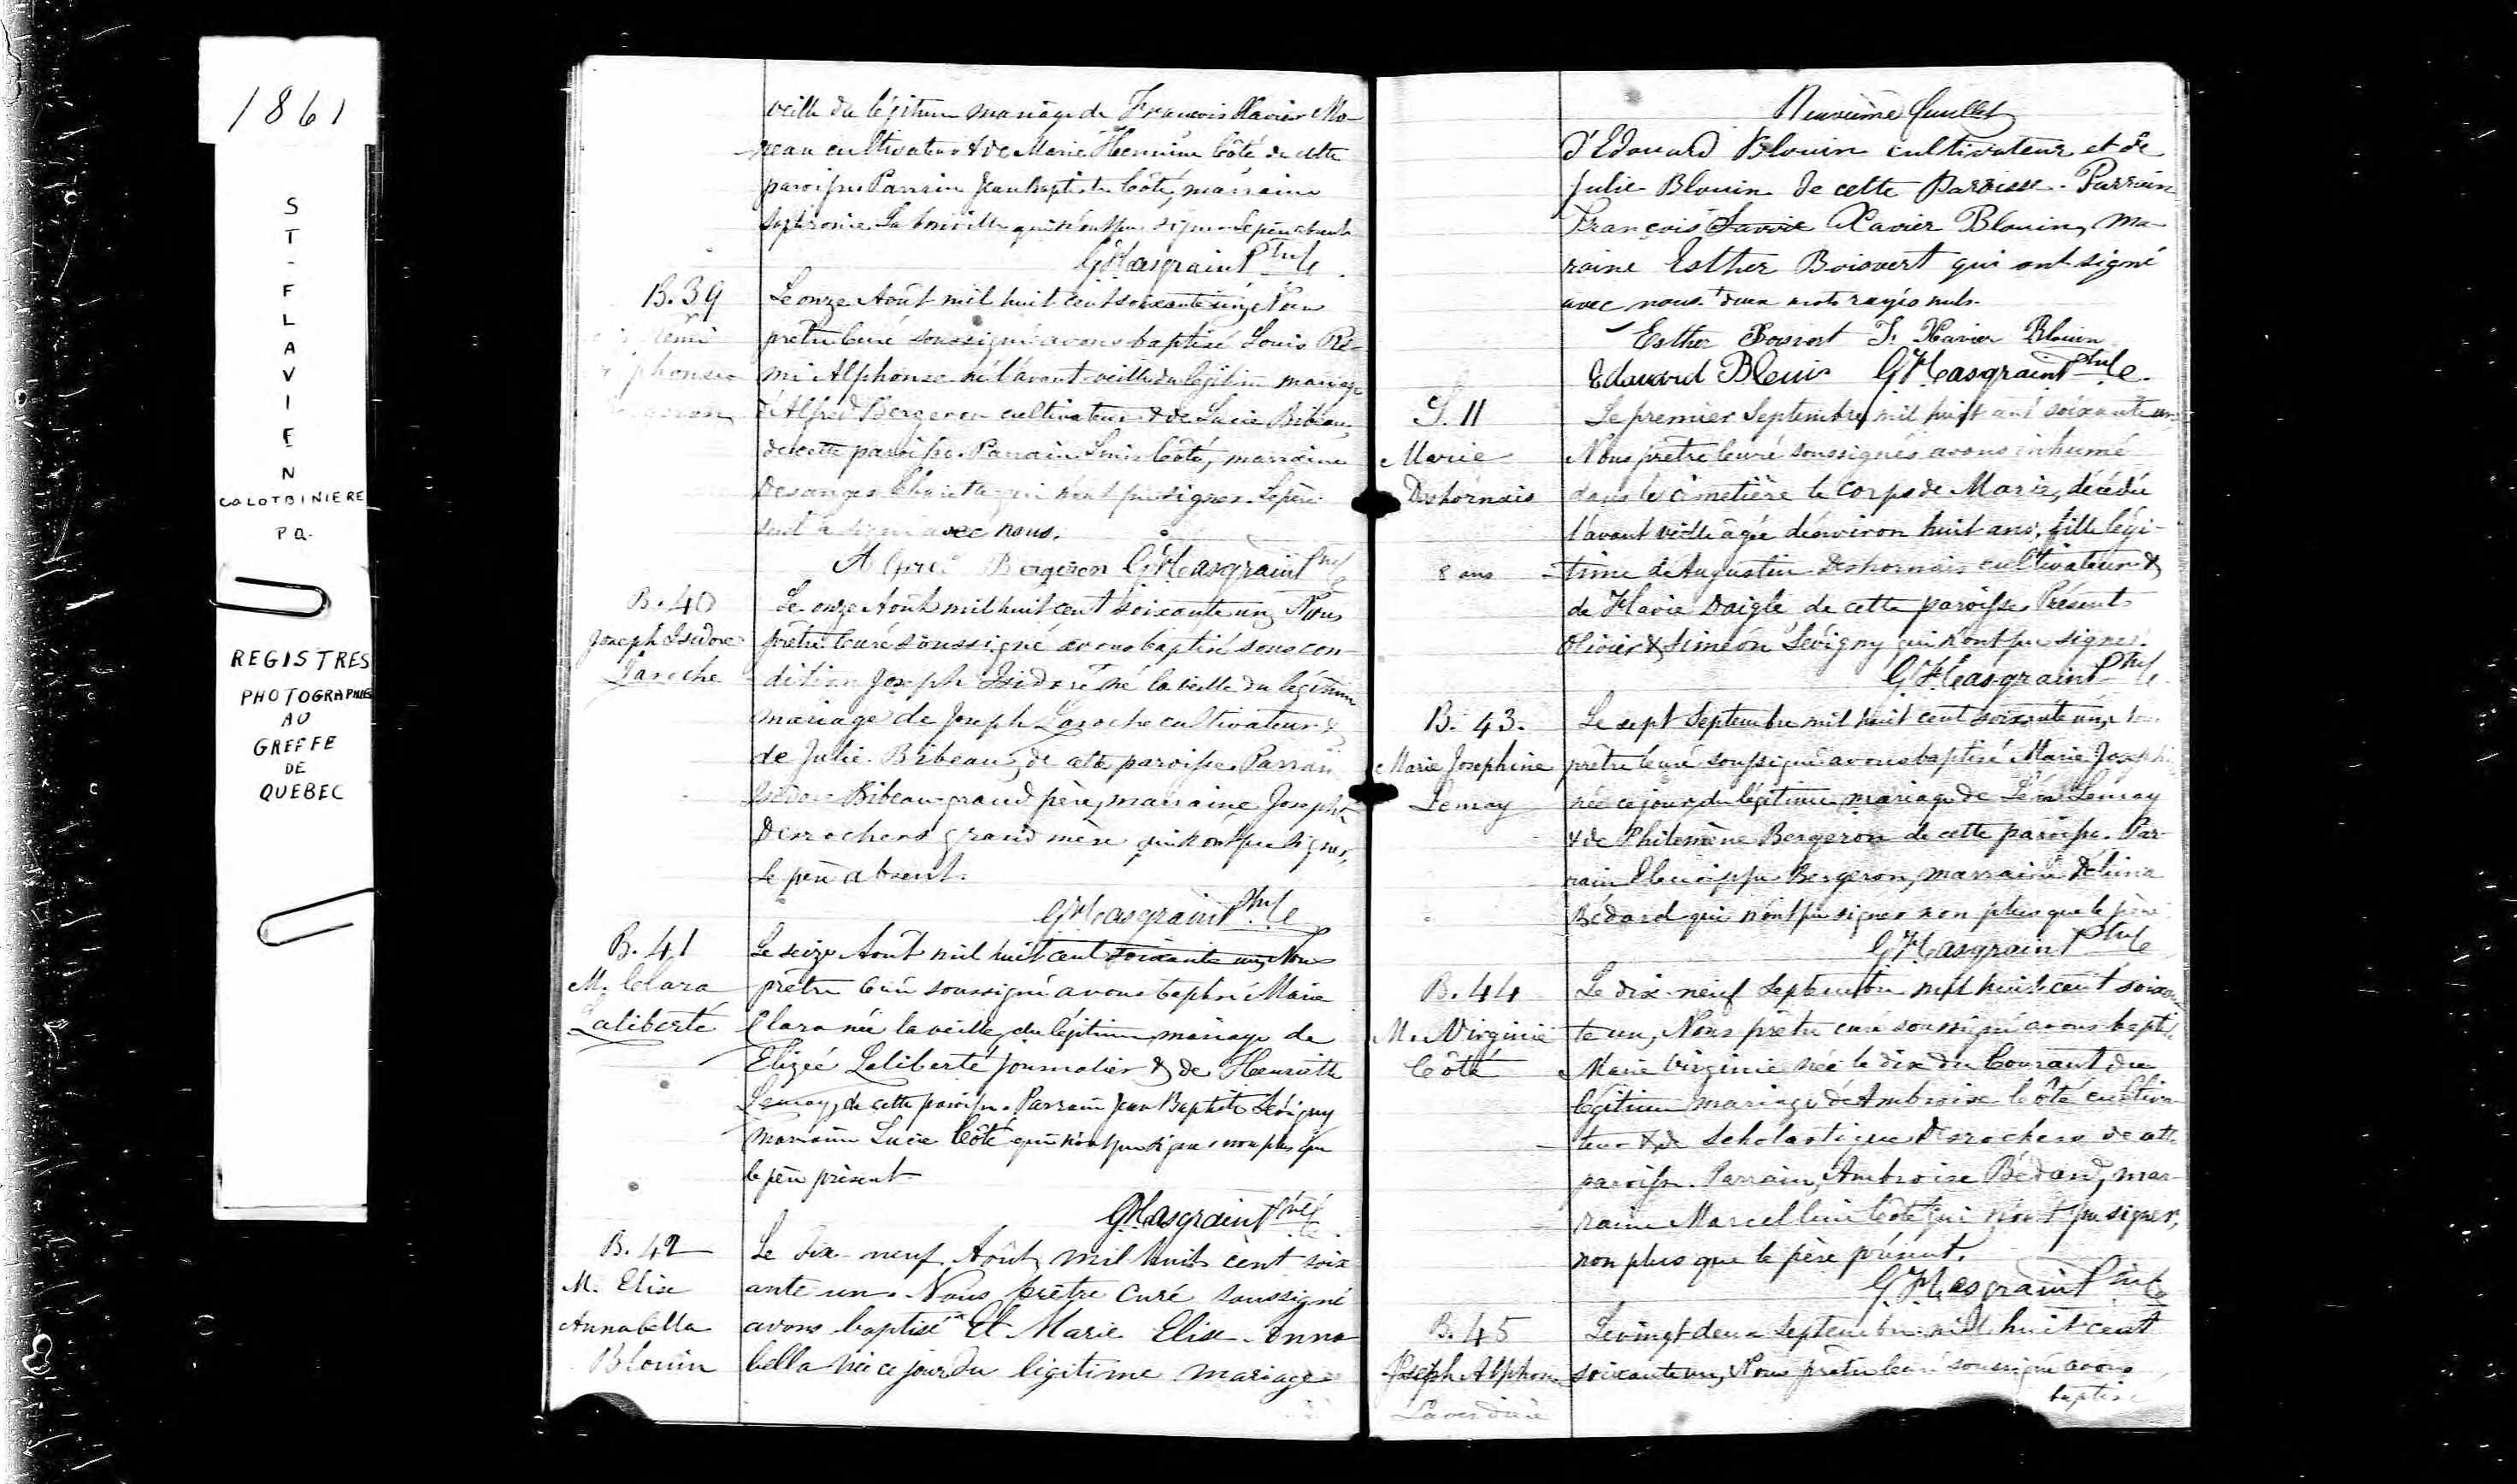 1861
ST-FLAVIEN
COLOTBINIERE
P Q.
REGISTRES
PHOTOGRAPHIE
AU
GREFFE
DE
QUEBEC
veille du légitime mariage de François Xavier Mo-
reau cultivateur & de Marie Hermine Côté de cette
paroisse Parrain Jean Baptiste Côté, marraine
qui n'ont pu signer le père absent
G H Casgrain Ptre
B. 39
Le onze Août mil huit cent soixante un, Nous
prêtre Curé soussigné avons baptisé Louis Ré-
mi Alphonse né l'avant veille du légitime mariage
d'Alfred Bergeron cultivateur & de Lucie Bibeau
de cette paroisse. Parrain Louis Côté, marraine
Desanges qui n'ont pu signer. Le père
seul a signé avec nous.
Alfred Bergeron G H Casgrain Ptre
B. 40
Joseph Isidore
Laroche
Le onze Août mil huit cent soixante un, Nous
prêtre Curé soussigné avons baptisé sous con-
dition Joseph Isidore né la veille du légitime
mariage de Joseph Laroche cultivateur &
de Julie Bibeau, de cette paroisse. Parrain
Isidore Bibeau grand père, marraine Josephte
Desrochers grand mère qui n'ont pu signer,
le père absent.
G H Casgrain Ptre
B. 41
M. Clara
Laliberté
Le seize Août mil huit cent soixante un, Nous
prêtre Curé soussigné avons baptisé Marie
Clara née la veille du légitime mariage de
Elizée Laliberté journalier & de Henriette
Lemay, de cette paroisse. Parrain Jean Baptiste Sévigny
marraine Lucie Côté qui n'ont pu signer non plus que
le père présent
G H Casgrain Ptre
B. 42
M. Elise
Annabella
Blouin
Le dix-neuf Août mil huit cent soix
ante un. Nous prêtre curé soussigné
avons baptisé Marie Elise Anna
bella née ce jour du légitime mariage
Neuvième feuillet
d'Edouard Blouin cultivateur et de
Julie Blouin de cette Paroisse. Parrain
François Xavier Blouin, ma
raine Esther Boisvert qui ont signé
avec nous. deux mots rayés nuls.
Esther Boisvert F. Xavier Blouin
Edouard Blouin G H Casgrain Ptre
S. 11
Marie
Deshornais
8 ans
Le premier Septembre mil huit cent soixante un,
Nous prêtre Curé soussignés avons inhumé
dans le cimetière le corps de Marie, décédée
l'avant veille âgée d'environ huit ans, fille légi-
time de Augustin Deshornais cultivateur &
de Flavie Daigle de cette paroisse. Présents
Olivier & Siméon Sévigny qui n'ont pu signer.
G H Casgrain Ptre
B. 43.
Marie Josephine
Lemay
Le sept Septembre mil huit cent soixante un,
prêtre Curé soussigné avons baptisé Marie Josephine
née ce jour du légitime mariage de Léon Lemay
& de Philomène Bergeron de cette paroisse. Par-
rain Bergeron, marraine Delima
Bédard qui n'ont pu signer non plus que le père
G H Casgrain Ptre
B. 44
M. Virginie
Côté
Le dix-neuf Septembre mil huit cent soixan
te un, Nous prêtre curé soussigné avons baptisé
Marie Virginie née le dix du Courant du
légitime mariage d'Ambroise Côté cultiva
teur & de Scholastique Desrochers de cette
paroisse. Parrain, Ambroise Bédard, mar-
raine Marcelline Côté qui n'ont pu signer,
non plus que le père présent.
G H Casgrain Ptre
B. 45
Joseph Alphonse
Laverdière
Le vingt deux Septembre mil huit cent
soixante un, Nous prêtre Curé soussigné avons
baptisé